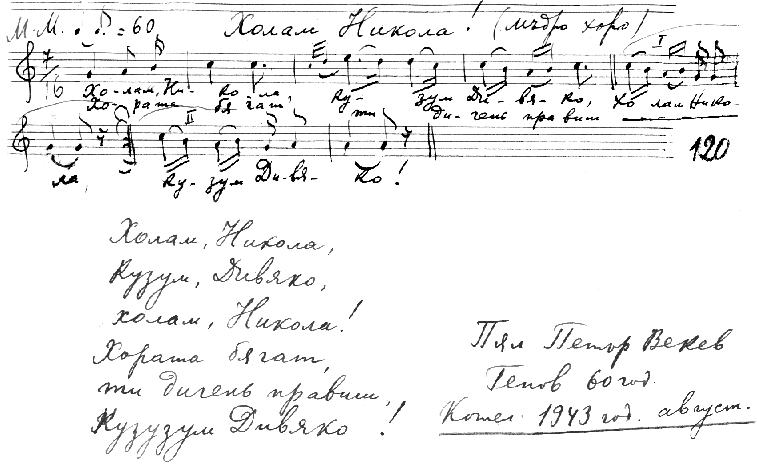 М.М. ♩ ♩. = 60 Холам Никола! (мъдро хоро)
I
7/16
Хо-лам, Ни- ко-ла, Ку- зум Ди-вя-ко, Хо лам Нико-
Хо-рата бя гат, ти ди-чень правиш
II
120
ла, Ку-зум Ди-вя- ко!
Холам, Никола,
Кузум, Дивяко,
холам, Никола!
Хората бягат,
ти дичень правиш,
Кузузум Дивяко!
Пял Петър Векев
Гепов 60 год.
Котел. 1943 год. август.